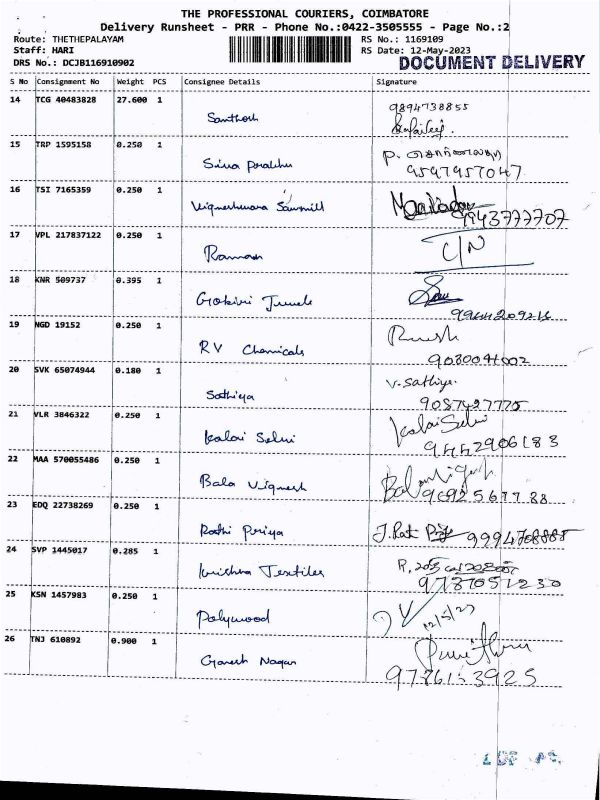 THE PROFESSIONAL COURIERS, COIMBATORE
Delivery Runsheet - PRR - Phone No.:0422-3505555 - Page No.:2
Route: THETHEPALAYAM RS No.: 1169109
Staff: HARI RS Date: 12-May-2023
DRS No.: DCJB116910902 DOCUMENT DELIVERY
S No Consignment No Weight PCS Consignee Details Signature
14 TCG 40483828 27.600 1
9894738855
Santhosh
15 TRP 1595158 0.250 1
Siva prabhu
9597957047
16 TSI 7165359 0.250 1
Vigneshwara Sawmill
9943777707
17 VPL 217837122 0.250 1
C/N
Raman
18 KNR 509737 0.395 1
19 NGD 19152 0.250 1
RV Chemicals
20 SVK 65074944 0.180 1
V. Sathiya
Sathiya
9087427775
21 VLR 3846322 0.250 1
Kalai Selvi
Kalai Selvi
9442906183
22 MAA 570055486 0.250 1
Bala Vignesh
23 EDQ 22738269 0.250 1
Rathi Priya
24 SVP 1445017 0.285 1
Krishna Textiles
9787051230
25 KSN 1457983 0.250 1
Polywood
12/5/23
26 TNJ 610892 0.900 1
Ganesh Nagar